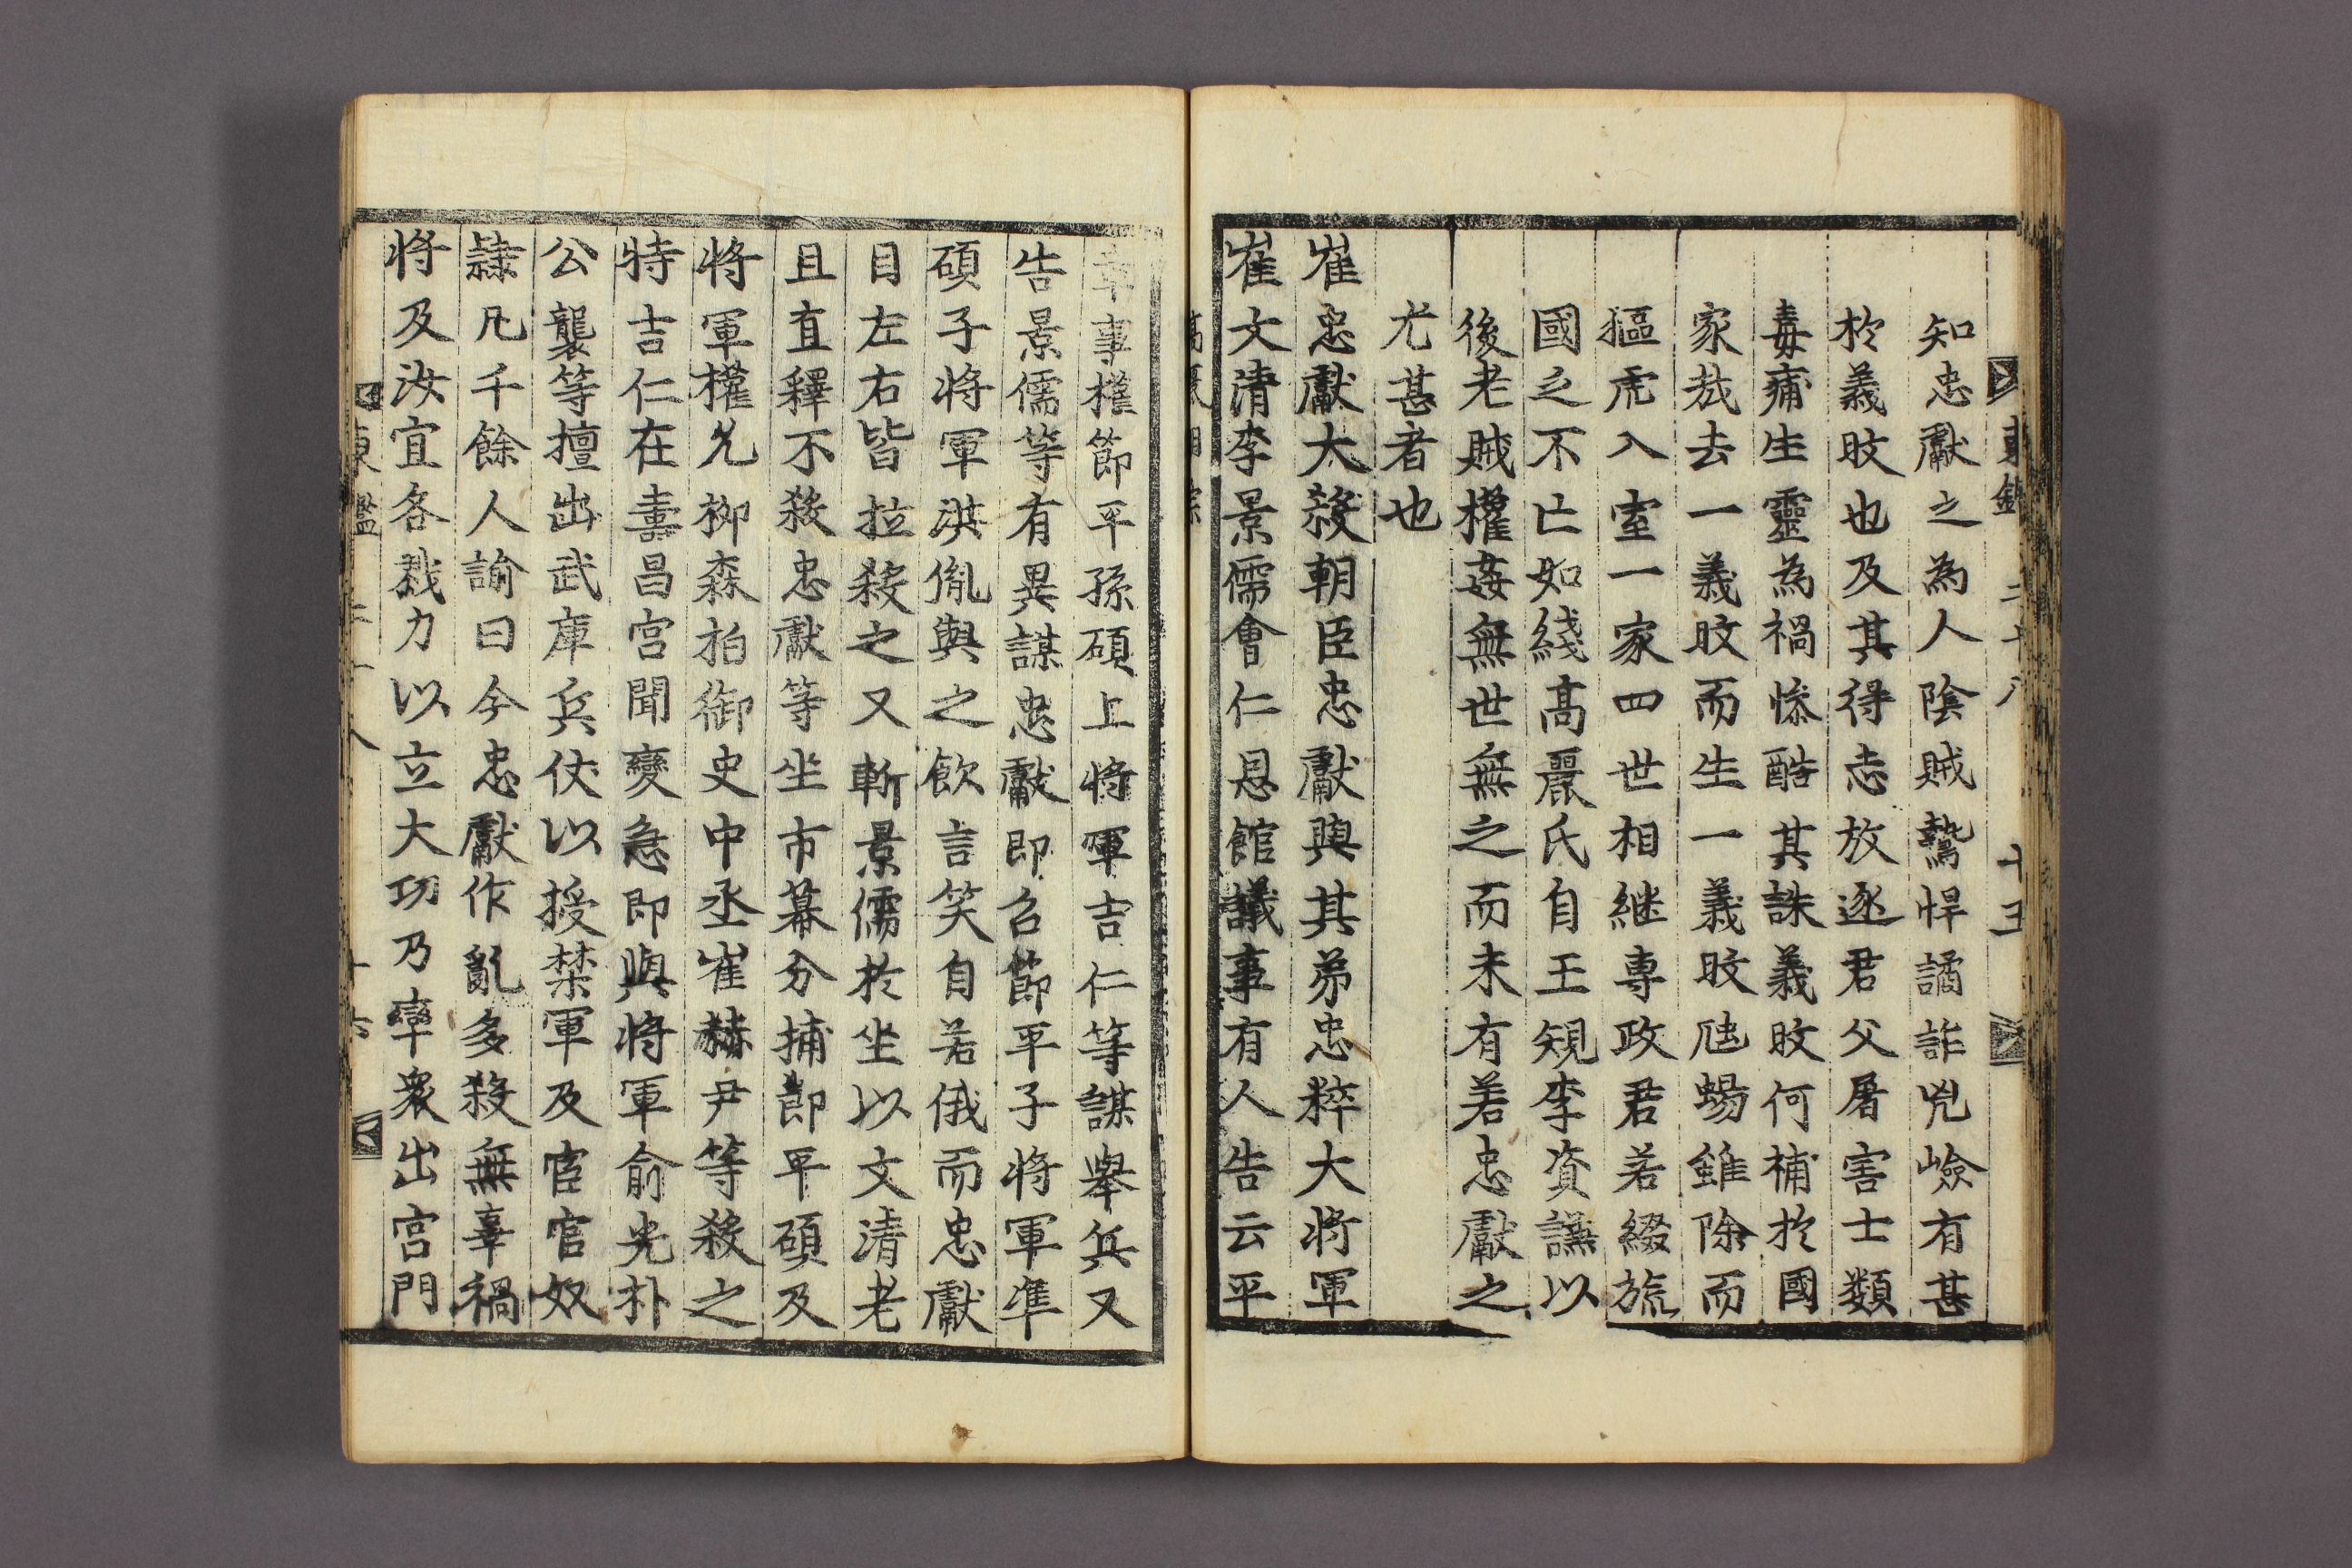 知忠獻之爲人陰賊鷙悍譎詐兇嶮有甚
於義旼也及其得志放逐君父屠害士類
毒痡生靈為禍慘酷其誅義旼何補於國
家㢤去一義旼而生一義旼虺蜴雖除而
貙虎入室一家四世相継専政君若綴旒
國之不亡如綫髙麗氏自王規李資謙以
後老賊權姦無世無之而未有若忠獻之
尤甚者也
崔忠獻大殺朝臣忠獻與其弟忠粹大將軍
崔文清李景儒會仁恩館議事有人告云平
章事權節平孫碩上將軍吉仁等謀舉兵又
告景儒等有異謀忠獻即召節平子將軍準
碩子將軍洪胤與之飲言笑自若俄而忠獻
目左右皆拉殺之又斬景儒於坐以文清老
且直釋不殺忠獻等坐市幕分捕節平碩及
將軍權允柳森栢御史中丞崔赫尹等殺之
特吉仁在壽昌宮聞變急即與將軍俞光朴
公襲等擅出武庫兵仗以授禁軍及宦官奴
隷凡千餘人諭曰今忠獻作亂多殺無辜禍
將及汝宜各戮力以立大功乃率衆出宮門